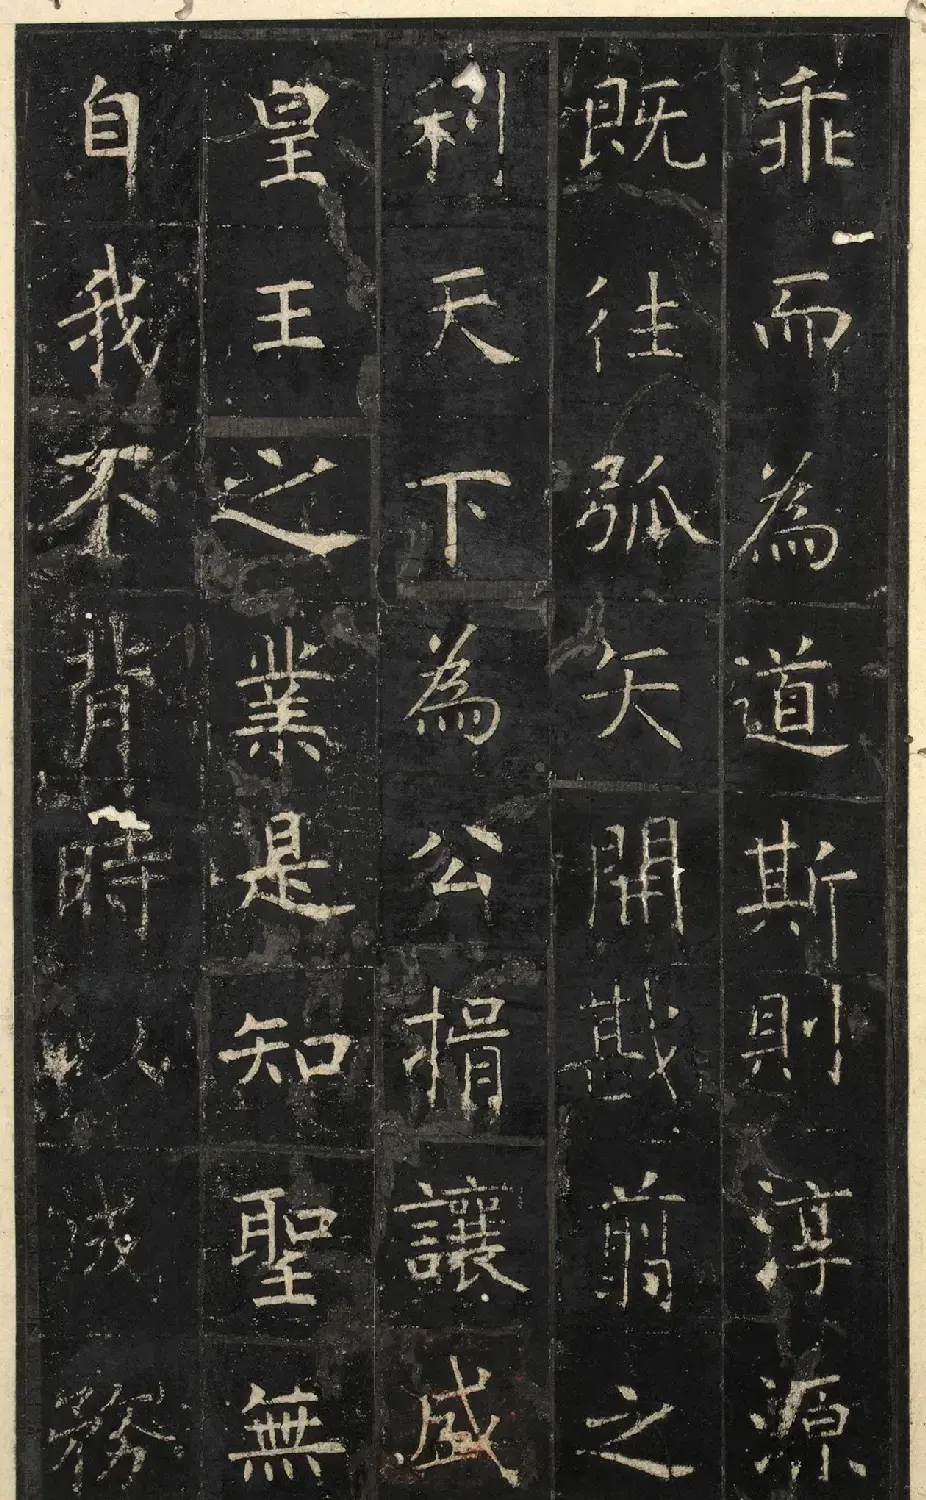 乖而為道斯則淳源
既往弧矢開戡翦之
利天下為公揖讓盛
皇王之業是知聖無
自我不背時以成務